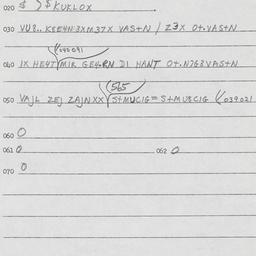 020 $ ) $ KUKLOX
030 VU8.. KEE4N3XM37X VAS+N / Z3X O+.VAS+N
((040041
040 IX HE4T MIR GE4.RN DI HANT O+.N7G3VAS+N
(565
050 VAJL ZEJ ZAJNXX S+MUCIG = S+MU8CIG ((039021
060 0
061 0 062 0
070 0